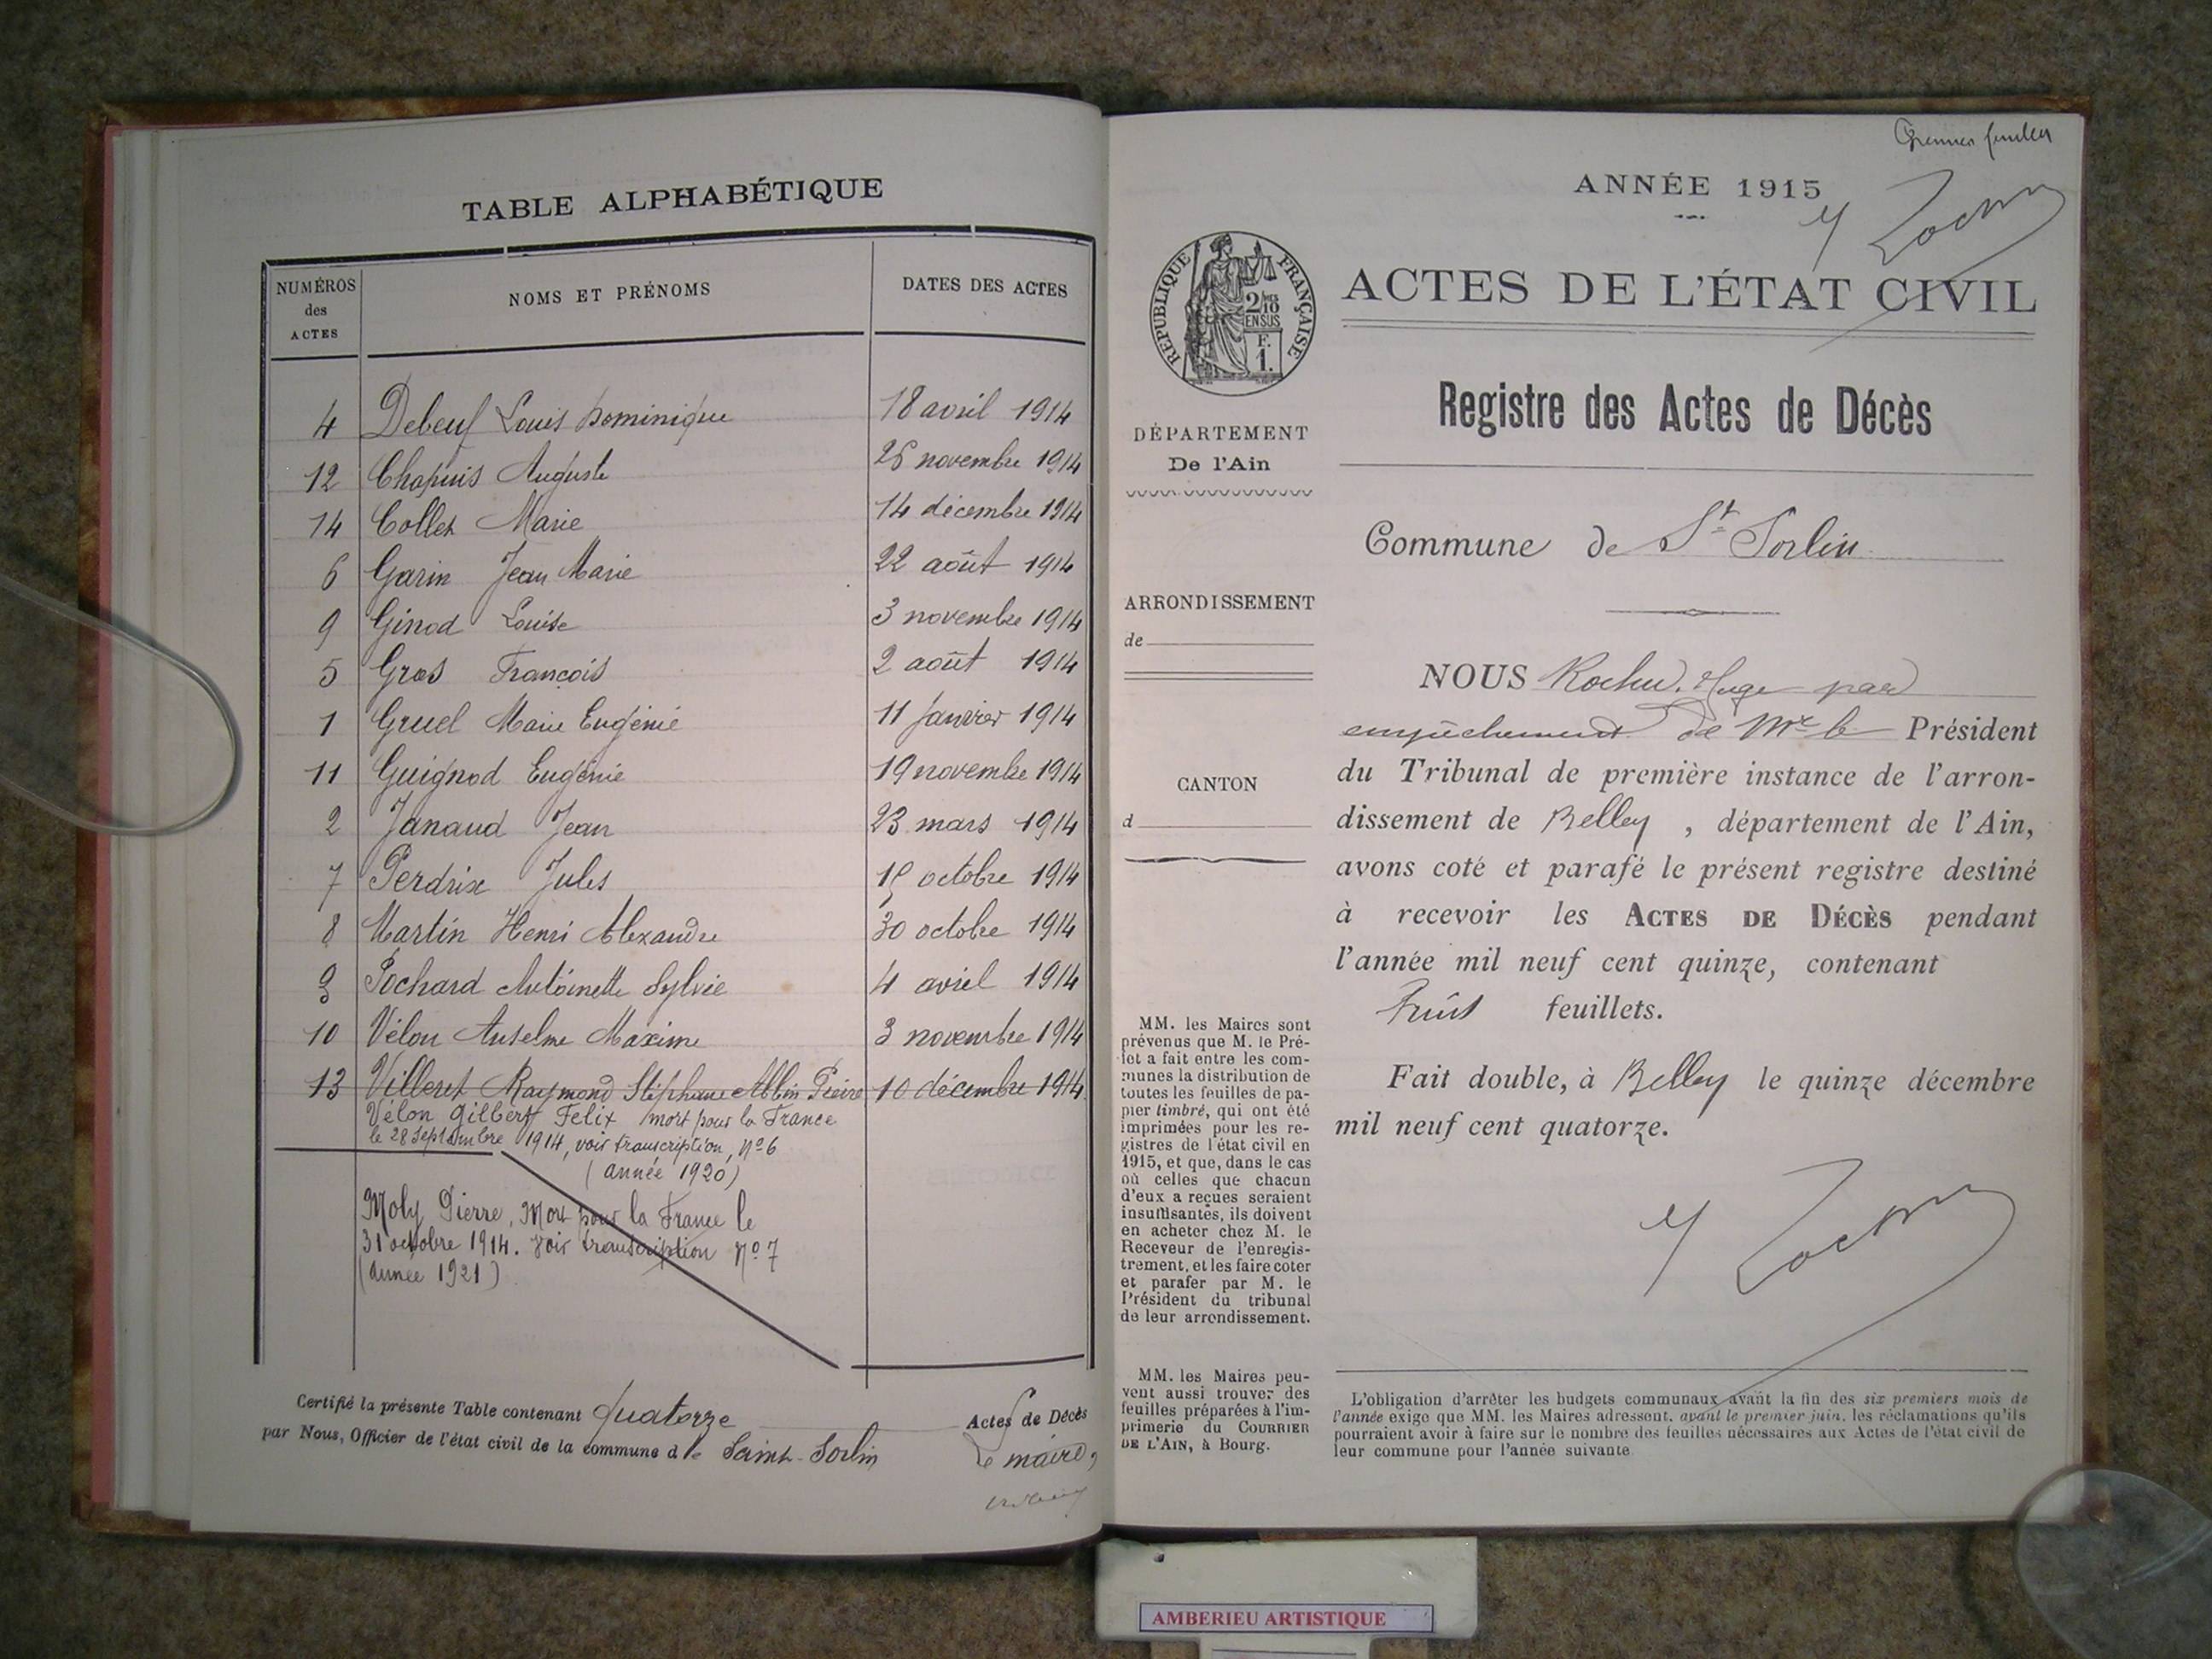 TABLE ALPHABÉTIQUE
NUMÉROS des ACTES
NOMS ET PRÉNOMS
DATES DES ACTES
4 Debeuf Louis Dominique 18 avril 1914
12 Chapuis Auguste 26 novembre 1914
14 Collet Marie 14 décembre 1914
6 Garin Jean Marie 22 août 1914
9 Ginod Louise 3 novembre 1914
5 Gros François 2 août 1914
1 Gruel Marie Eugénie 11 janvier 1914
11 Guignod Eugénie 19 novembre 1914
2 Janaud Jean 23 mars 1914
7 Perdrix Jules 15 octobre 1914
8 Martin Henri Alexandre 30 octobre 1914
3 Pochard Antoinette Sylvie 4 avril 1914
10 Vélon Anselme Maxime 3 novembre 1914
13 Villeret Raymond Stéphane Albin Pierre 10 décembre 1914
Vélon Gilbert Felix mort pour la France
le 28 Septembre 1914, voir transcription, N° 6
(année 1920)
Moly Pierre, Mort pour la France le
31 octobre 1914. Voir transcription N° 7
(année 1921)
Certifié la présente Table contenant quatorze Actes de Décès
par Nous, Officier de l'état civil de la commune de Saint-Sorlin
Le maire,
ANNÉE 1915
RÉPUBLIQUE FRANÇAISE
2/10
EN SUS
F.
1.
ACTES DE L'ÉTAT CIVIL
Registre des Actes de Décès
DÉPARTEMENT
De l'Ain
Commune de St Sorlin
ARRONDISSEMENT
de
CANTON
d
NOUS Juge par
empêchement de Mr le Président
du Tribunal de première instance de l'arron-
dissement de Belley, département de l'Ain,
avons coté et parafé le présent registre destiné
à recevoir les ACTES DE DÉCÈS pendant
l'année mil neuf cent quinze, contenant
huit feuillets.
Fait double, à Belley le quinze décembre
mil neuf cent quatorze.
MM. les Maires sont
prévenus que M. le Pré-
fet a fait entre les com-
munes la distribution de
toutes les feuilles de pa-
pier timbré, qui ont été
imprimées pour les re-
gistres de l'état civil en
1915, et que, dans le cas
où celles que chacun
d'eux a reçues seraient
insuffisantes, ils doivent
en acheter chez M. le
Receveur de l'enregis-
trement, et les faire coter
et parafer par M. le
Président du tribunal
de leur arrondissement.
MM. les Maires peu-
vent aussi trouver des
feuilles préparées à l'im-
primerie du COURRIER
DE L'AIN, à Bourg.
L'obligation d'arrêter les budgets communaux avant la fin des six premiers mois de
l'année exige que MM. les Maires adressent, avant le premier juin, les réclamations qu'ils
pourraient avoir à faire sur le nombre des feuilles nécessaires aux Actes de l'état civil de
leur commune pour l'année suivante
AMBERIEU ARTISTIQUE